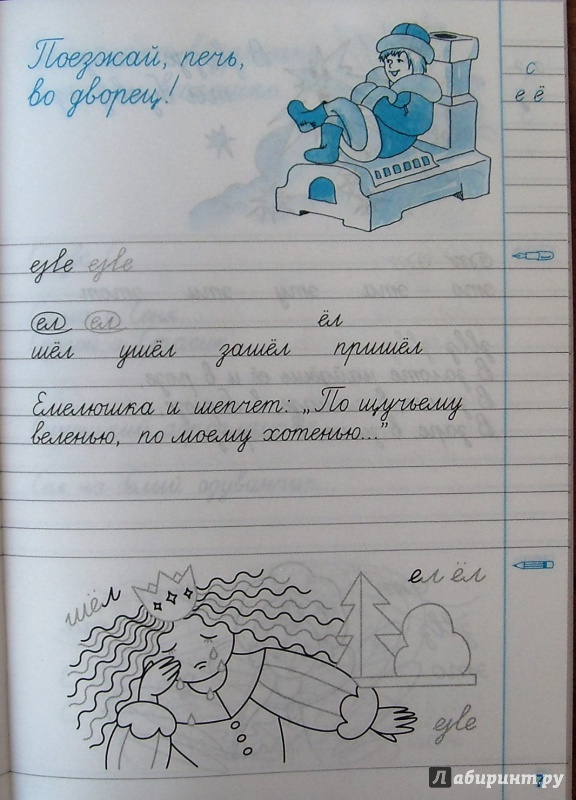 Поезжай, печь,
во дворец!
с
е ё
езве езве
ел ел ёл
шёл ушёл зашёл пришёл
Емелюшка и шепчет: „По щучьему
веленью, по моему хотенью..."
шёл
ел ёл
езве
Лабиринт.ру